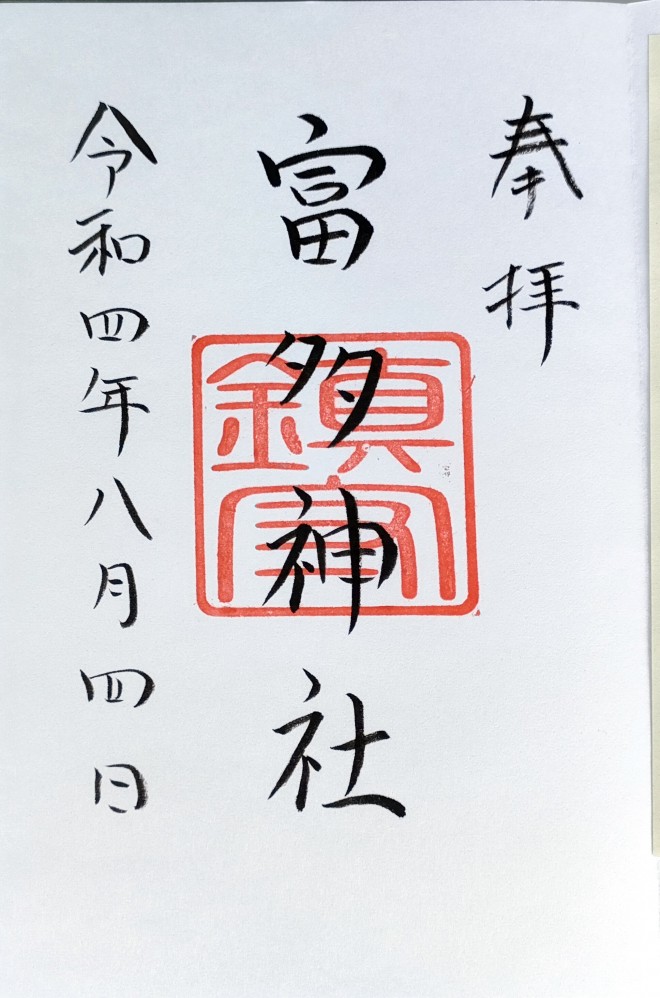 奉拝
富多神社
鎮家
令和四年八月四日